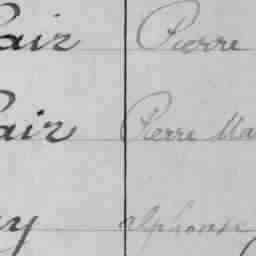 air Pierre
air Pierre Ma
y alphonse